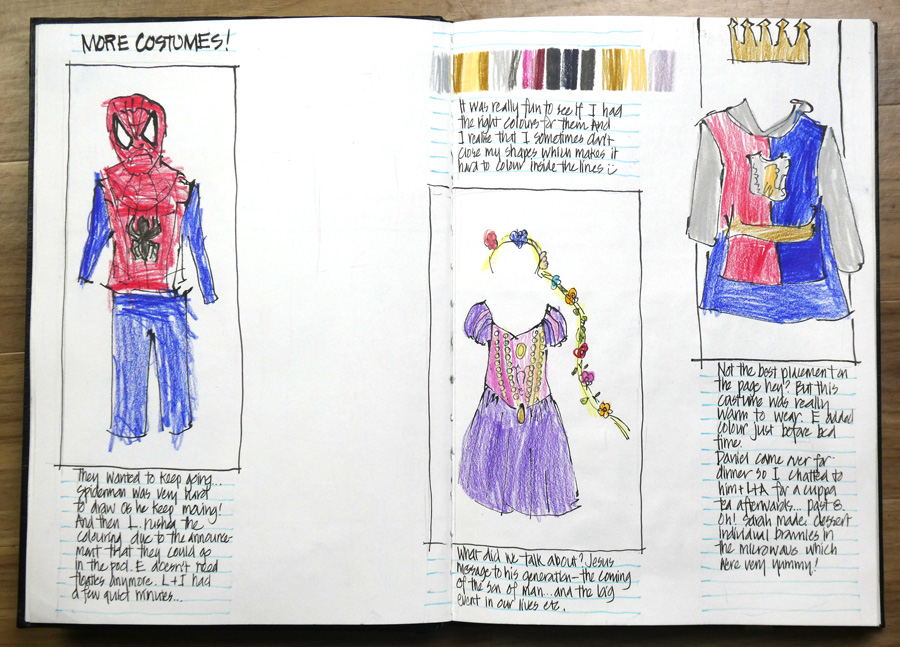 MORE COSTUMES!
They wanted to keep going...
Spiderman was very hard
to draw as he keep moving!
And then L. rushed the
colouring due to the announce-
ment that they could go
in the pool. E doesn't need
floaties anymore. L+I had
a few quiet minutes...
It was really fun to see if I had
the right colours for them. And
I realise that I sometimes don't
close my shapes which makes it
hard to colour inside the lines
What did we talk about? Jesus
message to his generation - the coming
of the son of man... and the big
event in our lives etc.
Not the best placement on
the page hey? But this
costume was really
warm to wear. E added
colour just before bed
time.
Daniel came over for
dinner so I chatted to
him + L+A for a cuppa
tea afterwards... past 8.
Oh! Sarah made dessert
individual brownies in
the microwave which
were very yummy!